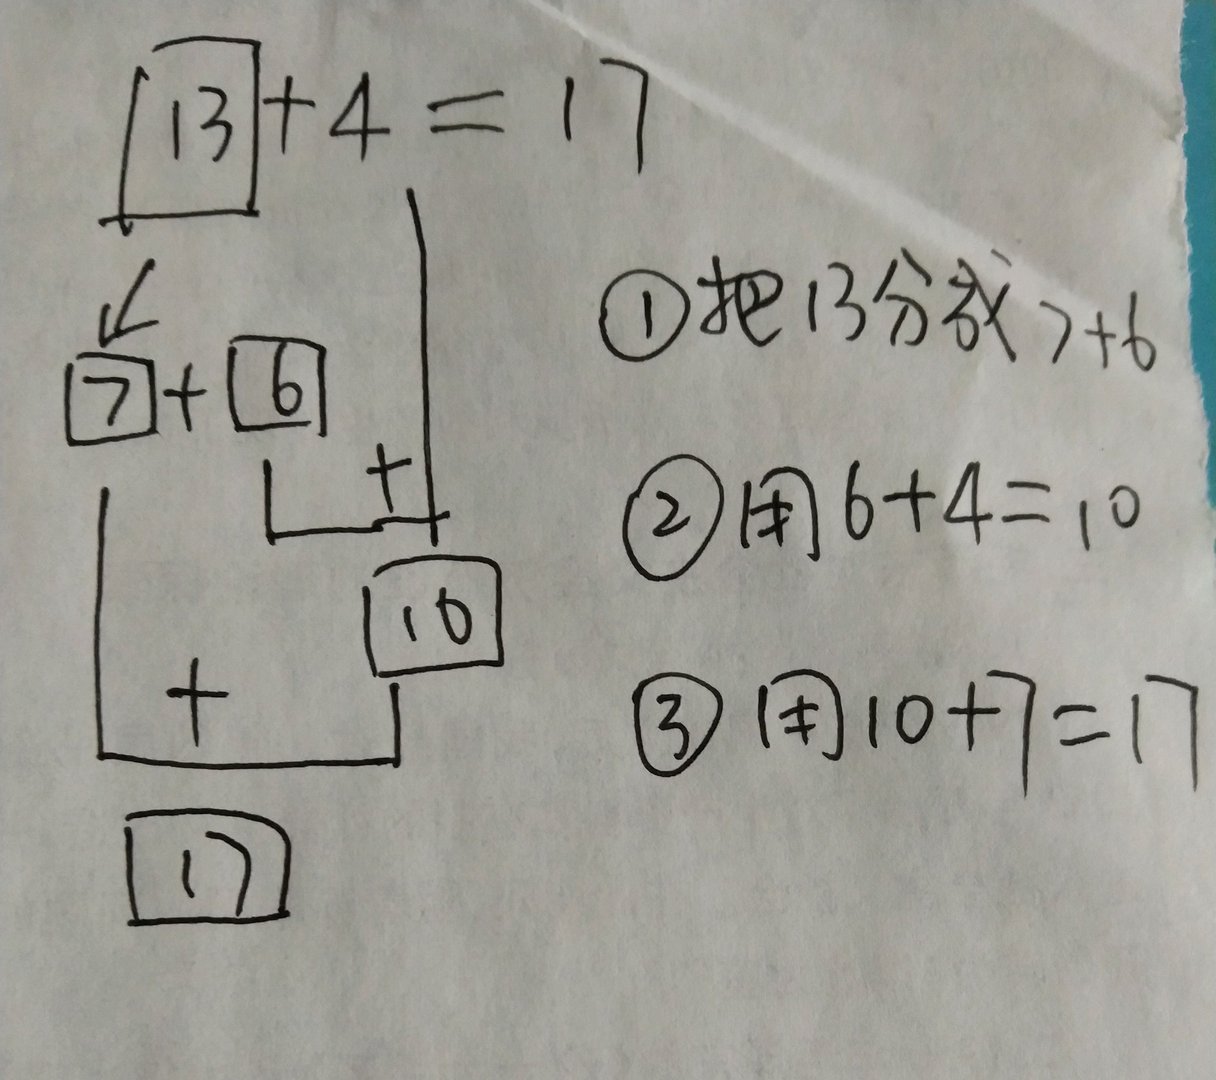 13+4=17
7+6
+
10
+
17
①把13分成7+6
②用6+4=10
③用10+7=17